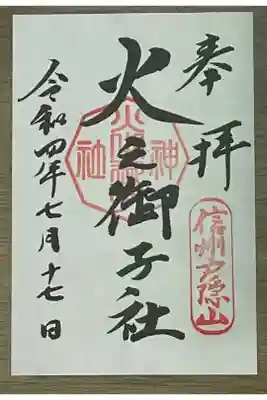 奉拝
信州戸隠山
火之御子社
神
社
令和四年七月十七日